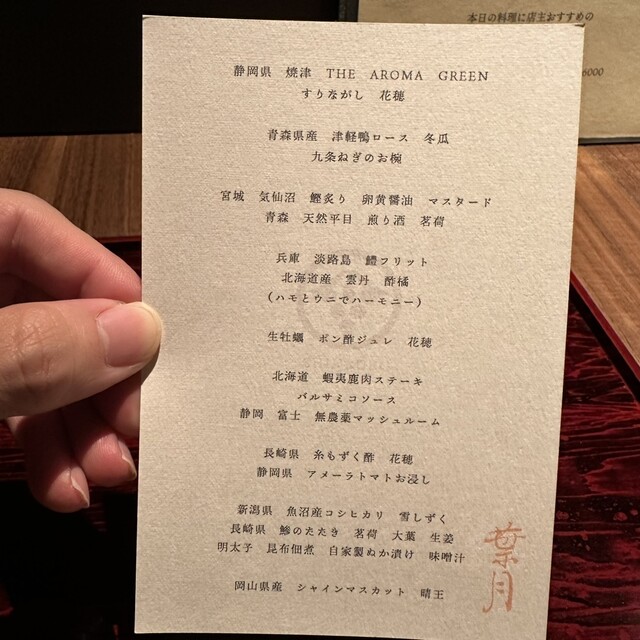 本日の料理に店主おすすめの
6000
静岡県 焼津 THE AROMA GREEN
すりながし 花穂
青森県産 津軽鴨ロース 冬瓜
九条ねぎのお椀
宮城 気仙沼 鰹炙り 卵黄醤油 マスタード
青森 天然平目 煎り酒 茗荷
兵庫 淡路島 鱧フリット
北海道産 雲丹 酢橘
(ハモとウニでハーモニー)
生牡蠣 ポン酢ジュレ 花穂
北海道 蝦夷鹿肉ステーキ
バルサミコソース
静岡 富士 無農薬マッシュルーム
長崎県 糸もずく酢 花穂
静岡県 アメーラトマトお浸し
新潟県 魚沼産コシヒカリ 雪しずく
長崎県 鯵のたたき 茗荷 大葉 生姜
明太子 昆布佃煮 自家製ぬか漬け 味噌汁
岡山県産 シャインマスカット 晴王
葉月